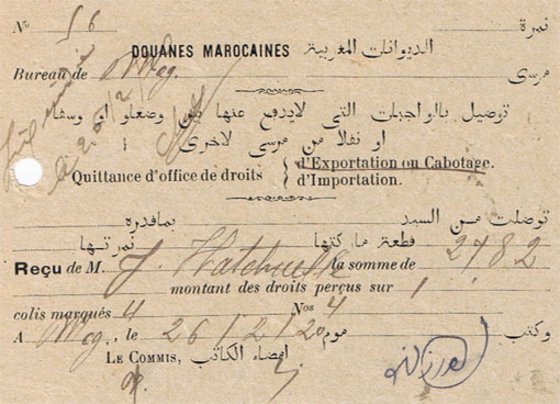 № 56 نمرة
DOUANES MAROCAINES الديوانات المغربية
Bureau de Mog. مرسى
توصيل بالواجبات التى لايدفع عنها بين وضعلو او وسقا
او نفلا من مرسى لاخرى
Quittance d'office de droits { d'Exportation ou Cabotage.
d'Importation.
توصلت من السيد بمافدره
قطعة ماركتها نمرتها
Reçu de M. J. Hatchuelle la somme de 2782
montant des droits perçus sur 1
colis marqués 4 Nos 4
A Mog, le 26/2/20 موم وكتب
LE COMMIS, امضاء الكاتب